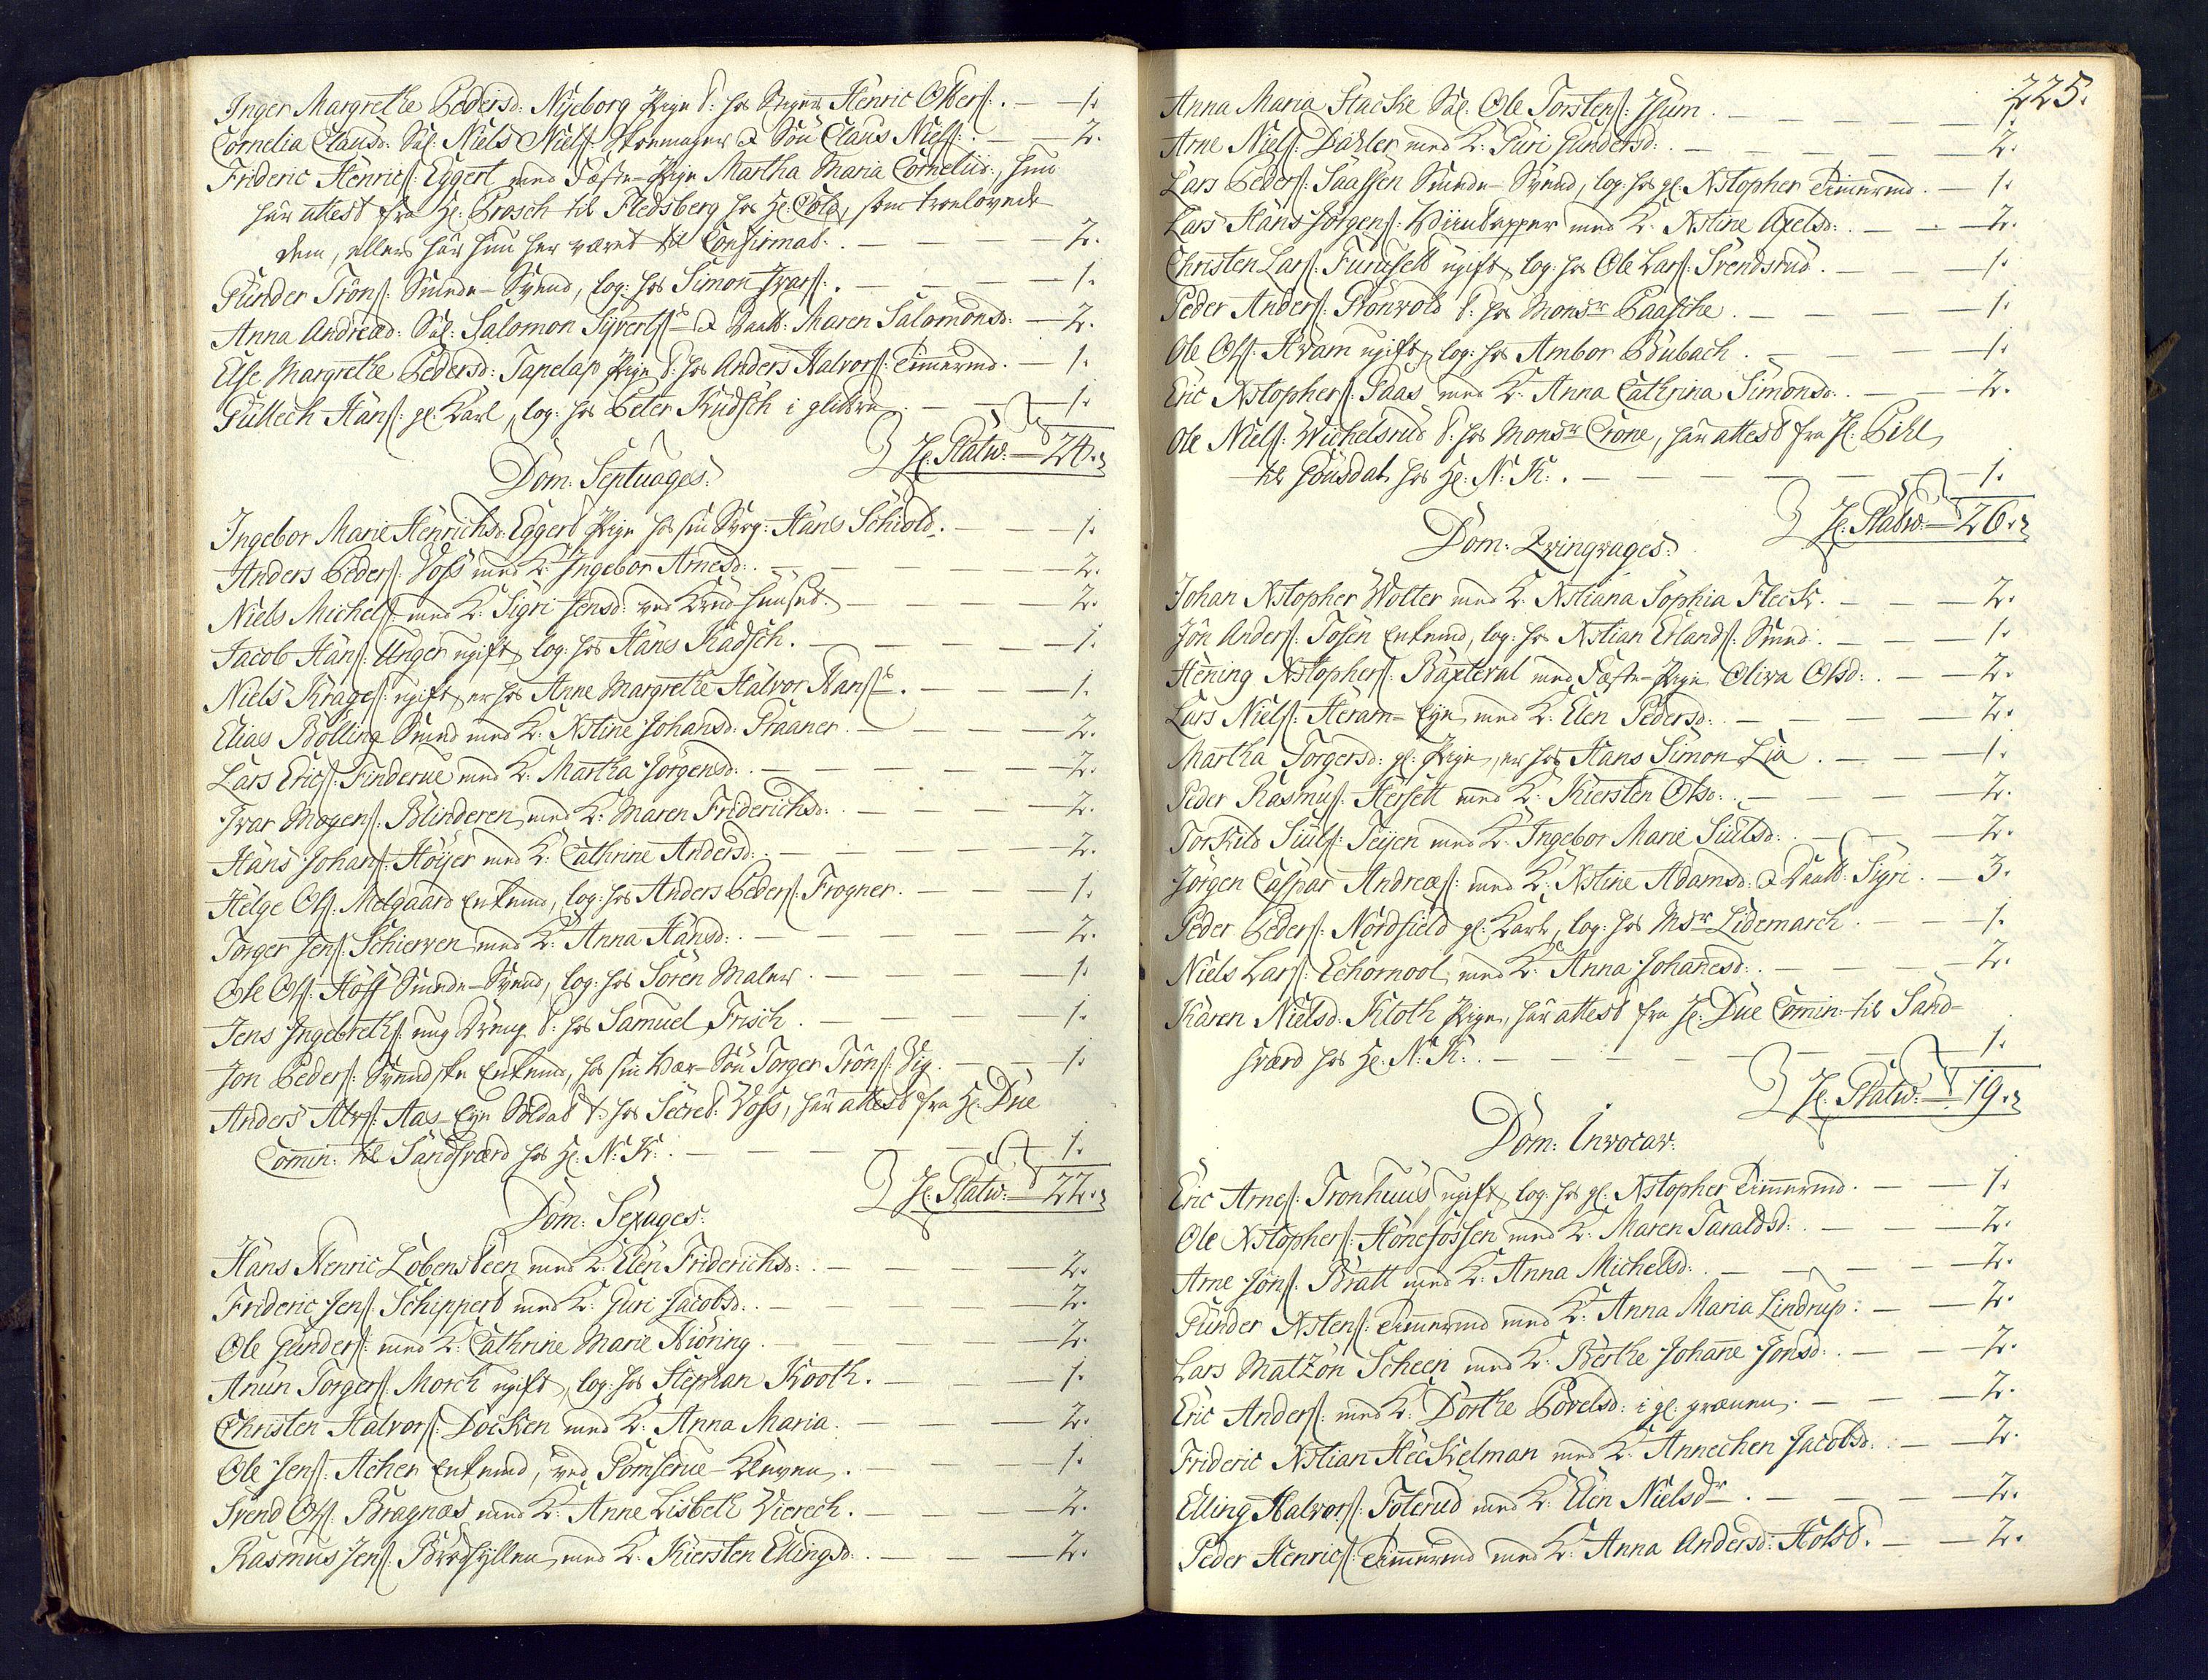 Inger Margrethe Pedersd: Nyeborg Pige t: hos Henric Olsers: — 1.
Cornelia Clausd: Sal: Niels Niels: Skoemagers & Søn Claus Niels: — 2.
Frideric Henrics: Eggert med Fæste-Pige Martha Maria Corneliid:, hun
har attest fra Hr: Brosch til Fledsberg hos Hr: Cold, som troelovede
dem, ellers har hun her været til Confirmat: — 2.
Gunder Trons: Smede-Svend, log: hos Simon Ivars: — 1.
Anna Andread: Sal: Salomon Syverts: & Datt: Maren Salomonsd: — 2.
Else Margrethe Pedersd: Tapelap Pige t: hos Anders Halvors: Timermd. — 1.
Gullech Hans: gl: Karl, log: hos Peter Kudsch i glitre — 1.
Hr: Statw: — 24.
Dom: Septuages:
Ingebor Marie Henrichsd: Eggert Pige hos sin Svog: Hans Schiold. — 1.
Anders Peders: Voss med K: Ingebor Arnesd: — 2.
Niels Michels: med K: Sigri Jensd: ved Krudhuuset. — 2.
Jacob Hans: Unger ugift, log: hos Hans Radsch. — 1.
Niels Krages: ugift, er hos Anne Margrethe Halvor Hans: — 1.
Elias Bølling Smed med K: Xstine Johansd: Praaner. — 2.
Lars Erics: Finderue med K: Martha Jørgensd: — 2.
Ivar Mogens: Blinderen, med K: Maren Friderichsd: — 2.
Hans Johans: Høyer med K: Cathrine Andersd: — 2.
Helge Ols: Melgaard Enkemd, log: hos Anders Peders: Frogner. — 1.
Torger Jens: Schierven med K: Anna Hansd: — 2.
Ole Ols: Hoff Smede-Svend, log: hos Søren Maler. — 1.
Jens Ingebreths: ung Dreng t: hos Samuel Frisch. — 1.
Jon Peders: Svendske Enkemd, hos sin Vær-Søn Torger Trøns: Dig. — 1.
Anders Alvs: Aas-Eye Soldat t: hos Secret: Voss, har attest fra Hr: Due
Comin: til Sandsværd hos Hr: N: K: — 1.
Hr: Statw: — 22.
Dom: Sexages:
Hans Henric Lobensteen med K: Elen Friderichsd: — 2.
Frideric Jens: Schippert med K: Guri Jacobsd: — 2.
Ole Gunders: med K: Cathrine Marie Hiøring. — 2.
Anun Torgers: Morch ugift, log: hos Stephan Krooth. — 1.
Christen Halvors: Docken med K: Anna Maria — 2.
Ole Jens: Acher Enkemd, ved Pomserue-Kleven. — 1.
Svend Ols: Bragnæs med K: Anne Lisbeth Viereck. — 2.
Rasmus Jens: med K: Kiersten Ellingsd: — 2.
225.
Anna Maria Stacke Sal: Ole Torstens: Ihum. — 1.
Arne Niels: Dahler med K: Guri Gundersd: — 2.
Lars Peders: Saassen Smede-Svend, log: hos gl: Xstopher Timermd. — 1.
Lars Hans Jørgens: Wiintapper med K: Xstine Axelsd: — 2.
Christen Lars: Furusett ugift, log: hos Ole Lars: Svendsrud. — 1.
Peder Anders: Grønvold t: hos Monsr Paaske. — 1.
Ole Ols: Kram ugift, log: hos Ambor Bubach. — 1.
Eric Xstophers: Saas med K: Anna Cathrina Simonsd: — 2.
Ole Niels: Wichelsrud t: hos Monsr Crone, har attest fra Hr: Pihl
til Gousdal hos Hr: N: K: — 1.
Hr: Statw: — 26.
Dom: Qvinqvages:
Johan Xstopher Wolter med K: Xstiana Sophia Fleck. — 2.
Jon Anders: Tosen Enkemd, log: hos Xstian Erlands: Smed. — 1.
Hening Xstophers: Baxterul med Fæste-Pige Oliva Olsd: — 2.
Lars Niels: Heram-Eye, med K: Elen Pedersd: — 2.
Martha Torgersd: gl: Pige, er hos Hans Simon Lia. — 1.
Peder Rasmus: Hersett med K: Kiersten Olsd: — 2.
Torkild Siuls: Teijen med K: Ingebor Marie Siulsd: — 2.
Jørgen Caspar Andreæs: med K: Xstine Adamsd: & Datt: Sigri. — 3.
Peder Peders: Nordfield gl: Karl, log: hos Msr Lidemarch. — 1.
Niels Lars: Echornool, med K: Anna Johanesd: — 2.
Karen Nielsd: Kloth Pige, har attest fra Hr: Due Comin: til Sand=
sværd hos Hr: N: K: — 1.
Hr: Statw: — 19.
Dom: Invocav:
Eric Arnes: Tronhuus, ugift, log: hos gl: Xstopher Timermd. — 1.
Ole Xstophers: Hønefossen med K: Maren Taraldsd: — 2.
Arne Jons: Bratt med K: Anna Michelsd: — 2.
Gunder Xstens: Timermd med K: Anna Maria Lindrup: — 2.
Lars Matzon Scheen med K: Berthe Johane Jonsd: — 2.
Eric Anders: med K: Dorthe Povelsd: i gl: grænen. — 2.
Frideric Xstian Heckelman med K: Annechen Jacobsd: — 2.
Elling Halvors: Toterud med K: Elen Nielsdr — 2.
Peder Henrics: Timermd med K: Anna Andersd: Holst. — 2.